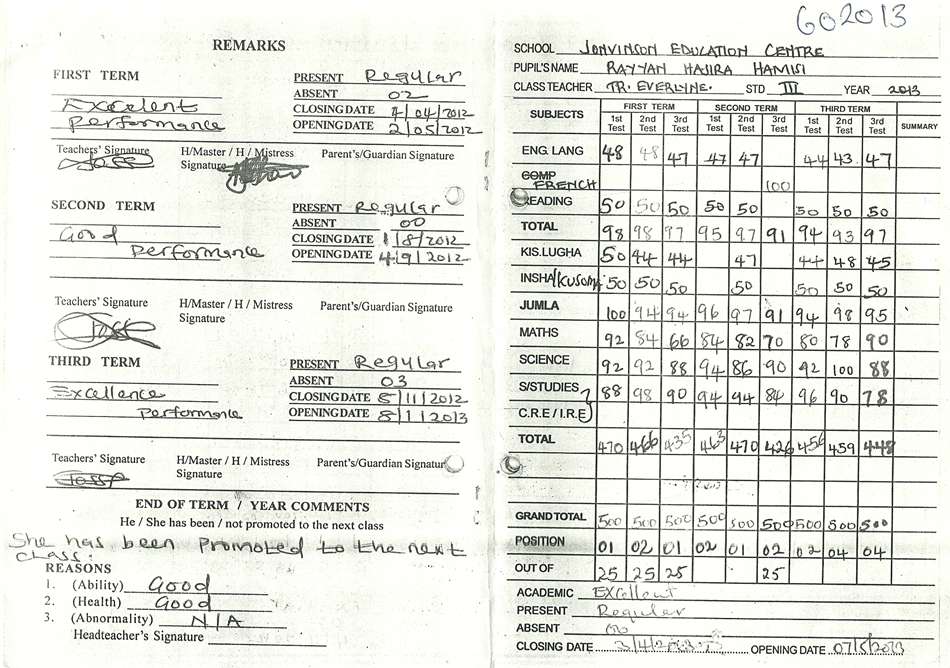 REMARKS
FIRST TERM
PRESENT Regular
ABSENT 02
Excelent
CLOSING DATE 4/04/2012
Performance
OPENING DATE 2/05/2012
Teachers' Signature H/Master / H / Mistress Parent's/Guardian Signature
Signature
SECOND TERM
PRESENT Regular
ABSENT 00
Good
CLOSING DATE 1/8/2012
Performance
OPENING DATE 4/9/2012
Teachers' Signature H/Master / H / Mistress Parent's/Guardian Signature
Signature
THIRD TERM
PRESENT Regular
ABSENT 03
Excellence
CLOSING DATE 5/11/2012
Performance
OPENING DATE 8/1/2013
Teachers' Signature H/Master / H / Mistress Parent's/Guardian Signature
Signature
END OF TERM / YEAR COMMENTS
He / She has been / not promoted to the next class
She has been Promoted to the next
class.
REASONS
1. (Ability) Good
2. (Health) Good
3. (Abnormality) N/A
Headteacher's Signature
602013
SCHOOL JONVINSON EDUCATION CENTRE
PUPIL'S NAME RAYYAN HAJIRA HAMISI
CLASS TEACHER TR. EVERLYNE. STD III YEAR 2013
SUBJECTS FIRST TERM SECOND TERM THIRD TERM SUMMARY
1st Test 2nd Test 3rd Test 1st Test 2nd Test 3rd Test 1st Test 2nd Test 3rd Test
ENG. LANG 48 48 47 47 47 44 43 47
COMP
FRENCH 100
READING 50 50 50 50 50 50 50 50
TOTAL 98 98 97 95 97 91 94 93 97
KIS.LUGHA 50 44 44 47 44 48 45
INSHA/KUSOMA 50 50 50 50 50 50 50
JUMLA 100 94 94 96 97 91 94 98 95
MATHS 92 84 66 84 82 70 80 78 90
SCIENCE 92 92 88 94 86 90 92 100 88
S/STUDIES 88 98 90 94 94 84 96 90 78
C.R.E / I.R.E
TOTAL 470 466 435 463 470 426 456 459 448
GRAND TOTAL 500 500 500 500 500 500 500 500 500
POSITION 01 02 01 02 01 02 02 04 04
OUT OF 25 25 25 25
ACADEMIC Excellent
PRESENT Regular
ABSENT
CLOSING DATE OPENING DATE 07/5/2013